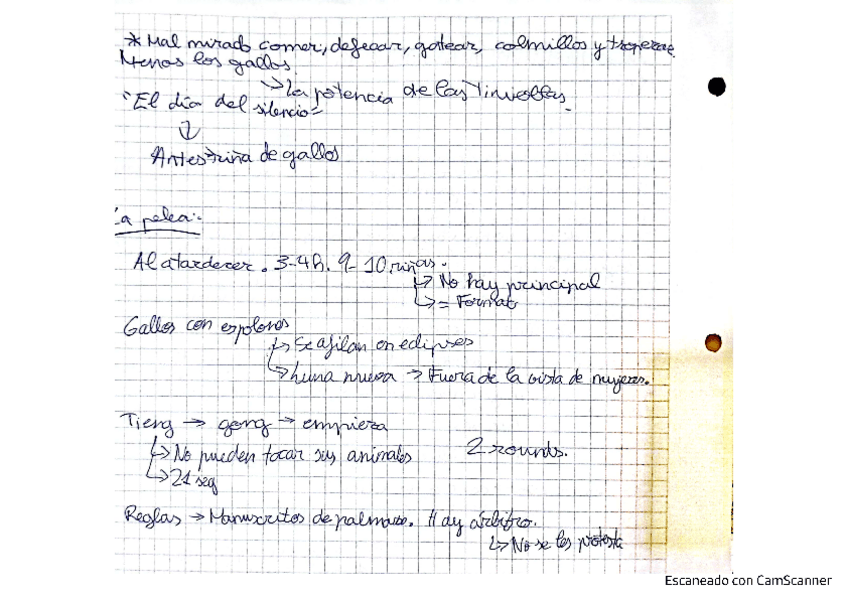 * Mal mirado comer, defecar, gatear, colmillos y
Menos los gallos.
↳ La potencia de las Tinieblas.
"El día del silencio"
↓
Antes riña de gallos
La pelea:
Al atardecer. 3-4h. 9-10 riñas.
↳ No hay principal
↳ = Format
Gallos con espolones
↳ Se afilan en eclipses
↳ Luna nueva → Fuera de la vista de mujeres.
Tieng → gong → empieza
↳ No pueden tocar sus animales 2 rounds.
↳ 21 seg
Reglas → Manuscritos de palma. Hay árbitro.
↳ No se les protesta
Escaneado con CamScanner